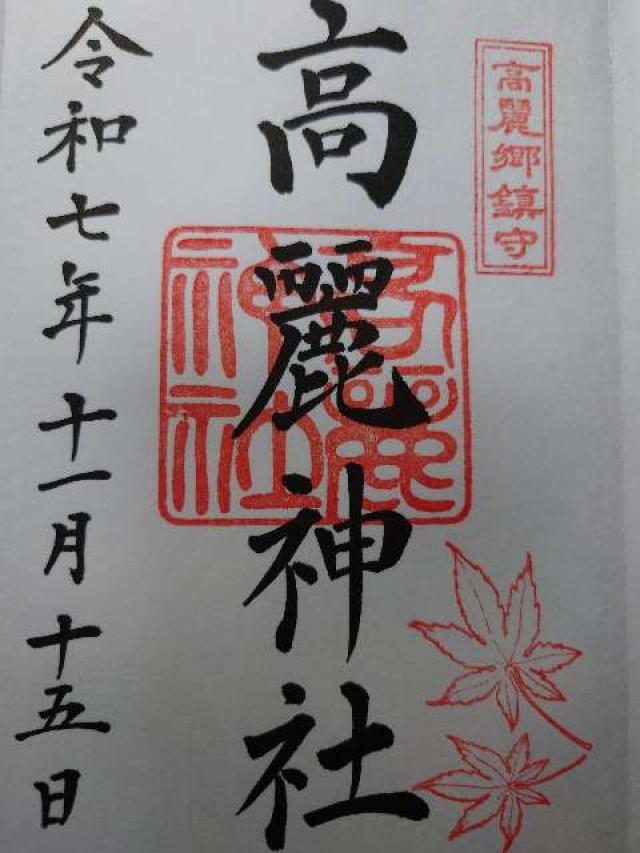 高麗郷鎮守
高麗神社
高麗神社
令和七年十一月十五日